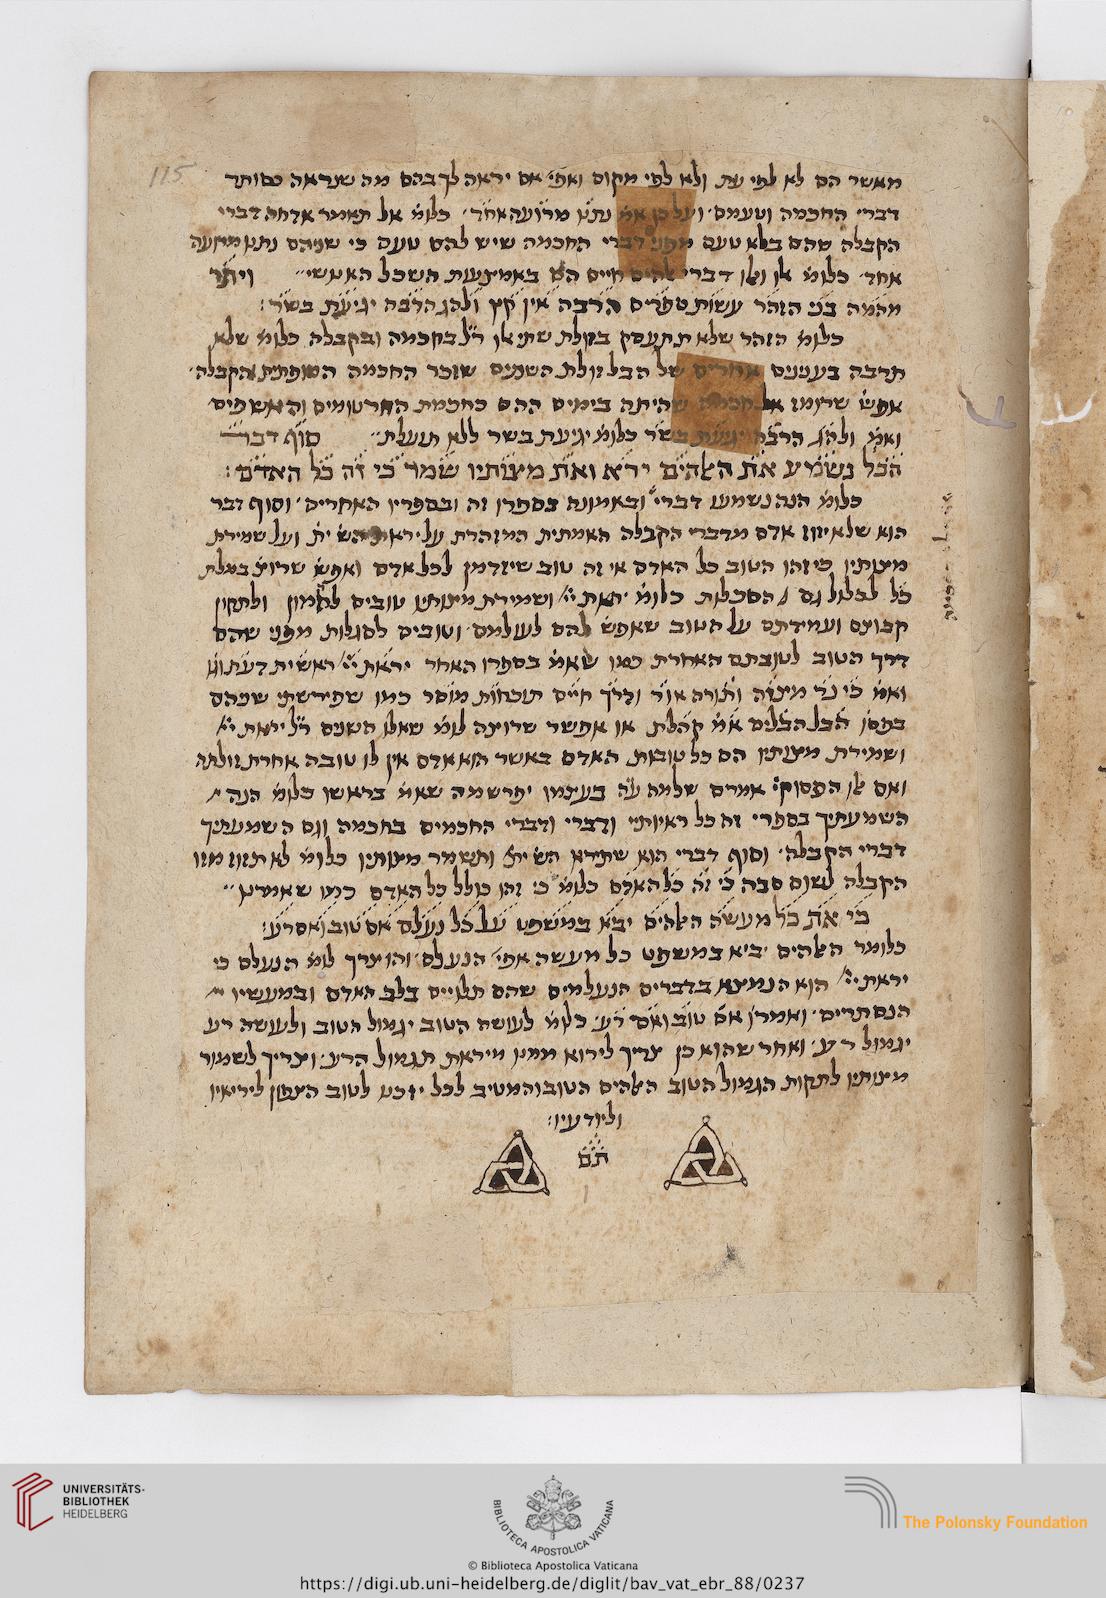 115
מאשר הם לא לפי עת ולא לפי מקום ואפי' אם יראה לך בהם מה שנראה כסותר
דברי החכמה וטעמם ועל כן אמ' נתנו מרועה אחד כלומ' אל תאמר אדחה דברי
הקבלה שהם בלא טעם מפני דברי החכמה שיש להם טעם כי שניהם נתנו מרועה
אחד כלומ' אלו ואלו דברי אלהים חיים הם באמצעות השכל האנשי ויתר
מהמה בני הזהר עשות ספרים הרבה אין קץ ולהג הרבה יגיעת בשר:
כלומ' הזהר שלא תתעסק בזולת שתי אלו ר"ל בחכמה ובקבלה כלומ' שלא
תרבה בענינים אחרים של הבל זולת השנים שזכר החכמה המופתית והקבלה
אפש' שרומז אל חכמה שהיתה בימים ההם כחכמת החרטומים והאשפים
ואמ' ולהג הרבה יגיעת בשר כלומ' יגיעת בשר ללא תועלת סוף דבר
הכל נשמע את האלהים ירא ואת מצותיו שמור כי זה כל האדם:
כלומ' הנה נשמעו דברי ובאמונה בספרו זה ובספריו האחרים וסוף דבר
הוא שלא יזוז אדם מדברי הקבלה האמתית המזהרת על יראת השי"ת ועל שמירת
מצותיו כי זהו הטוב כל האדם אי זה טוב שיזדמן לכל אדם ואפש' שרוצ' במלת
כל לכלול גם הסכלות כלומ' יראת ושמירת מצותיו טובים להמון ולתקון
קבוצם ועמידתם על הטוב שאפש' להם לעולמם וטובים לסגלות מפני שהם
דרך הטוב לטובתם האחרת כמו שאמ' בספרו האחר יראת ראשית דעת וגו'
ואמ' כי נר מצוה ותורה אור ודרך חיים תוכחות מוסר כמו שפירשתי שניהם
בפסו' הבל הבלים אמ' קהלת או אפשר שרוצה לומ' שאלו השנים ר"ל יראת
ושמירת מצותיו הם כל טובות האדם באשר הוא אדם אין לו טובה אחרת זולתה
ואם אלו הפסוקי' אמרם שלמה ע"ה בעצמו יפרש מה שאמ' בראשו כלומ' הנה
השמעתיך בספרי זה כל ראיותי ודברי ודברי החכמים בחכמה וגם השמעתיך
דברי הקבלה וסוף דברי הוא שתירא השי"ת ותשמר מצותיו כלומ' לא תזוז מזו
הקבלה לשום סבה כי זה כל האדם כלומ' כי זהו כולל כל האדם כמו שאמרנו
כי את כל מעשה האלהים יביא במשפט על כל נעלם אם טוב ואם רע:
כלומר האלהים יביא במשפט כל מעשה אפי' הנעלם והוצרך לומ' הנעלם כי
יראת הוא הנמצא בדברים הנעלמים שהם תלויים בלב האדם ובמעשיו
הנסתרים ואמרו אם טוב ואם רע כלומ' לעושה הטוב יגמול הטוב ולעושה רע
יגמול רע ואחר שהוא כן צריך לירוא ממנו מיראת תגמול הרע וצריך לשמור
מצותיו לתקות הגמול הטוב האלהים הטוב והמטיב לכל יזכנו לטוב הצפון ליריאיו
וליודעיו:
תם
UNIVERSITÄTS-
BIBLIOTHEK
HEIDELBERG
BIBLIOTECA APOSTOLICA VATICANA
© Biblioteca Apostolica Vaticana
The Polonsky Foundation
https://digi.ub.uni-heidelberg.de/diglit/bav_vat_ebr_88/0237